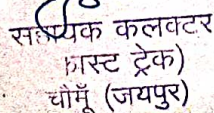 सहायक कलक्टर
फास्ट ट्रेक)
चौमूँ (जयपुर)